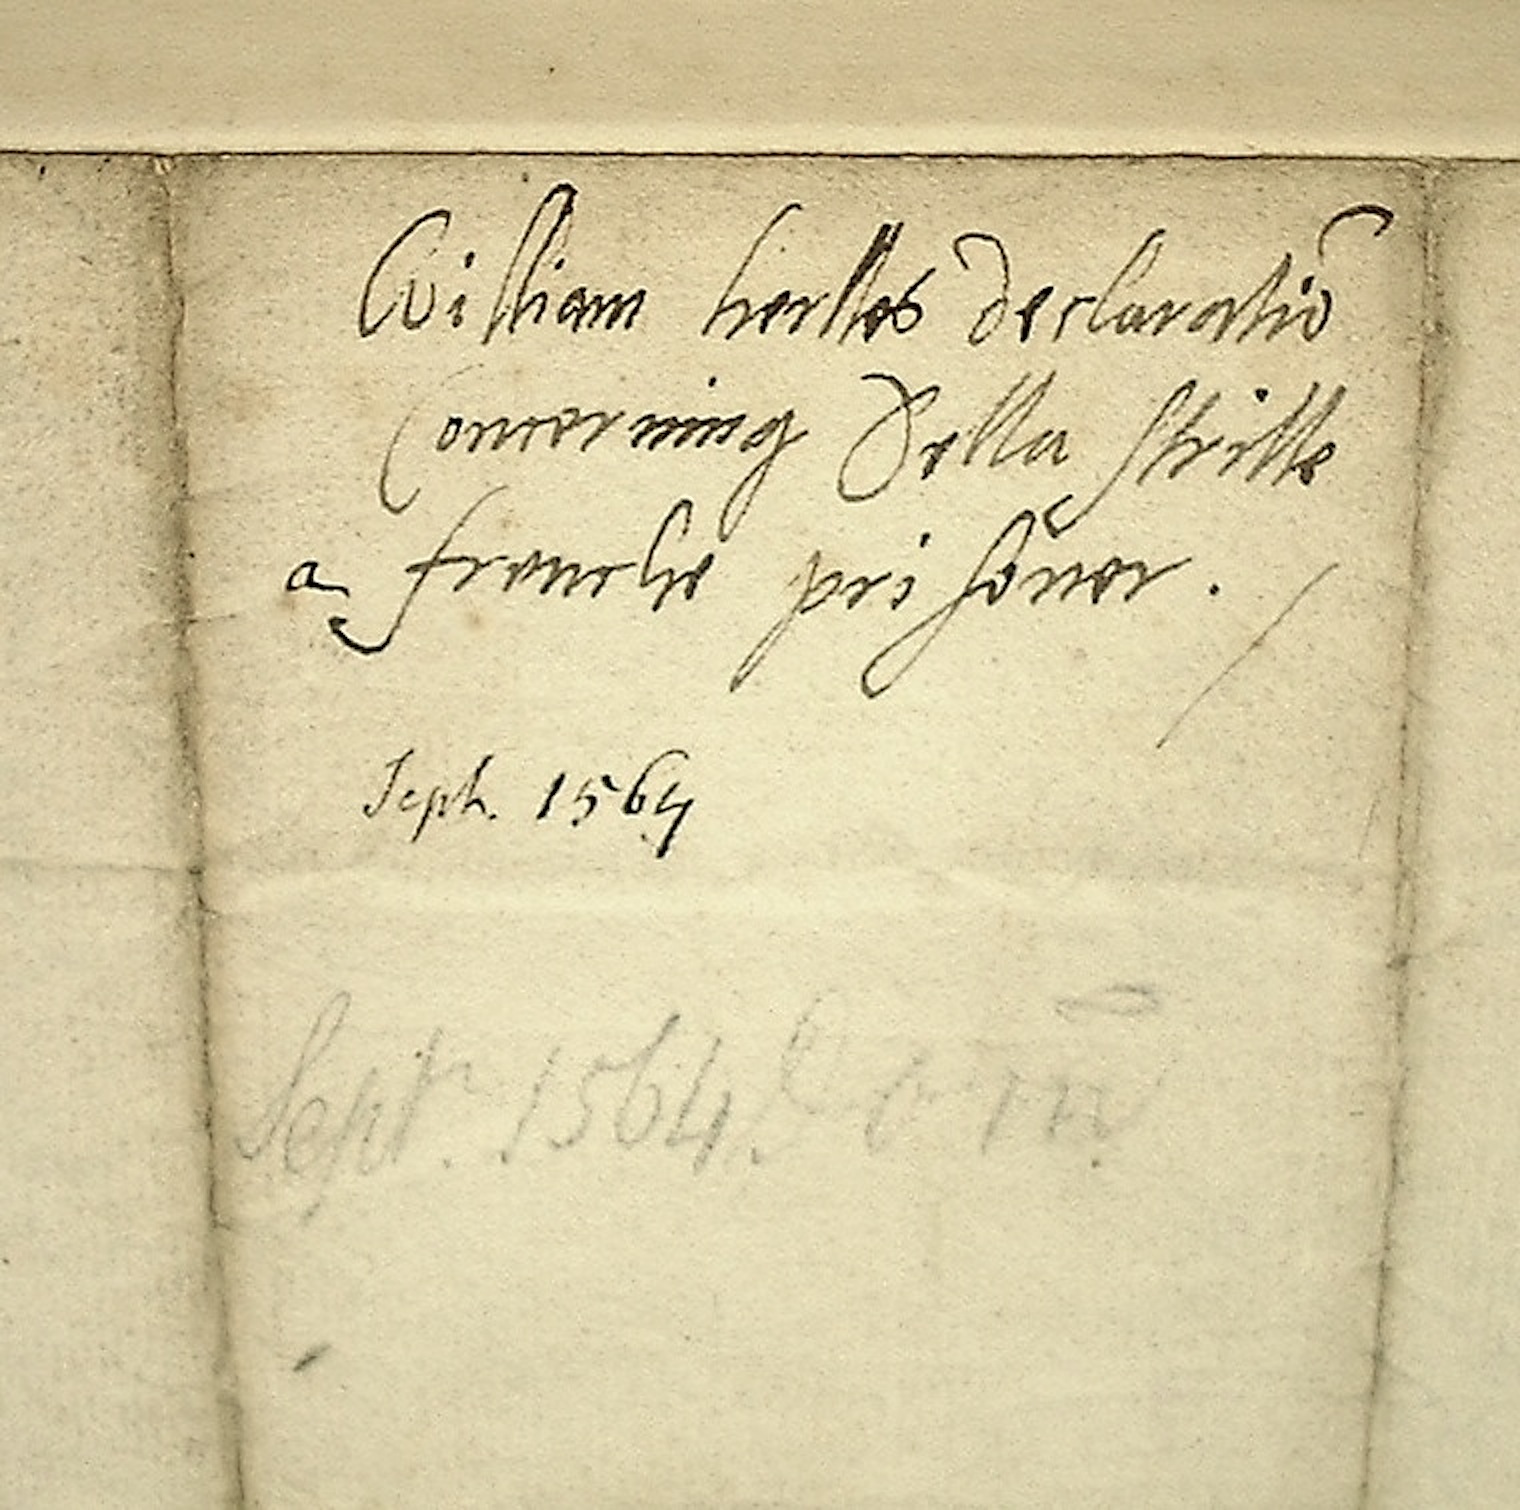 William herlles declaratiō
Concerning Della Strille
a frenche prisōner .
Sept. 1564
Sept. 1564